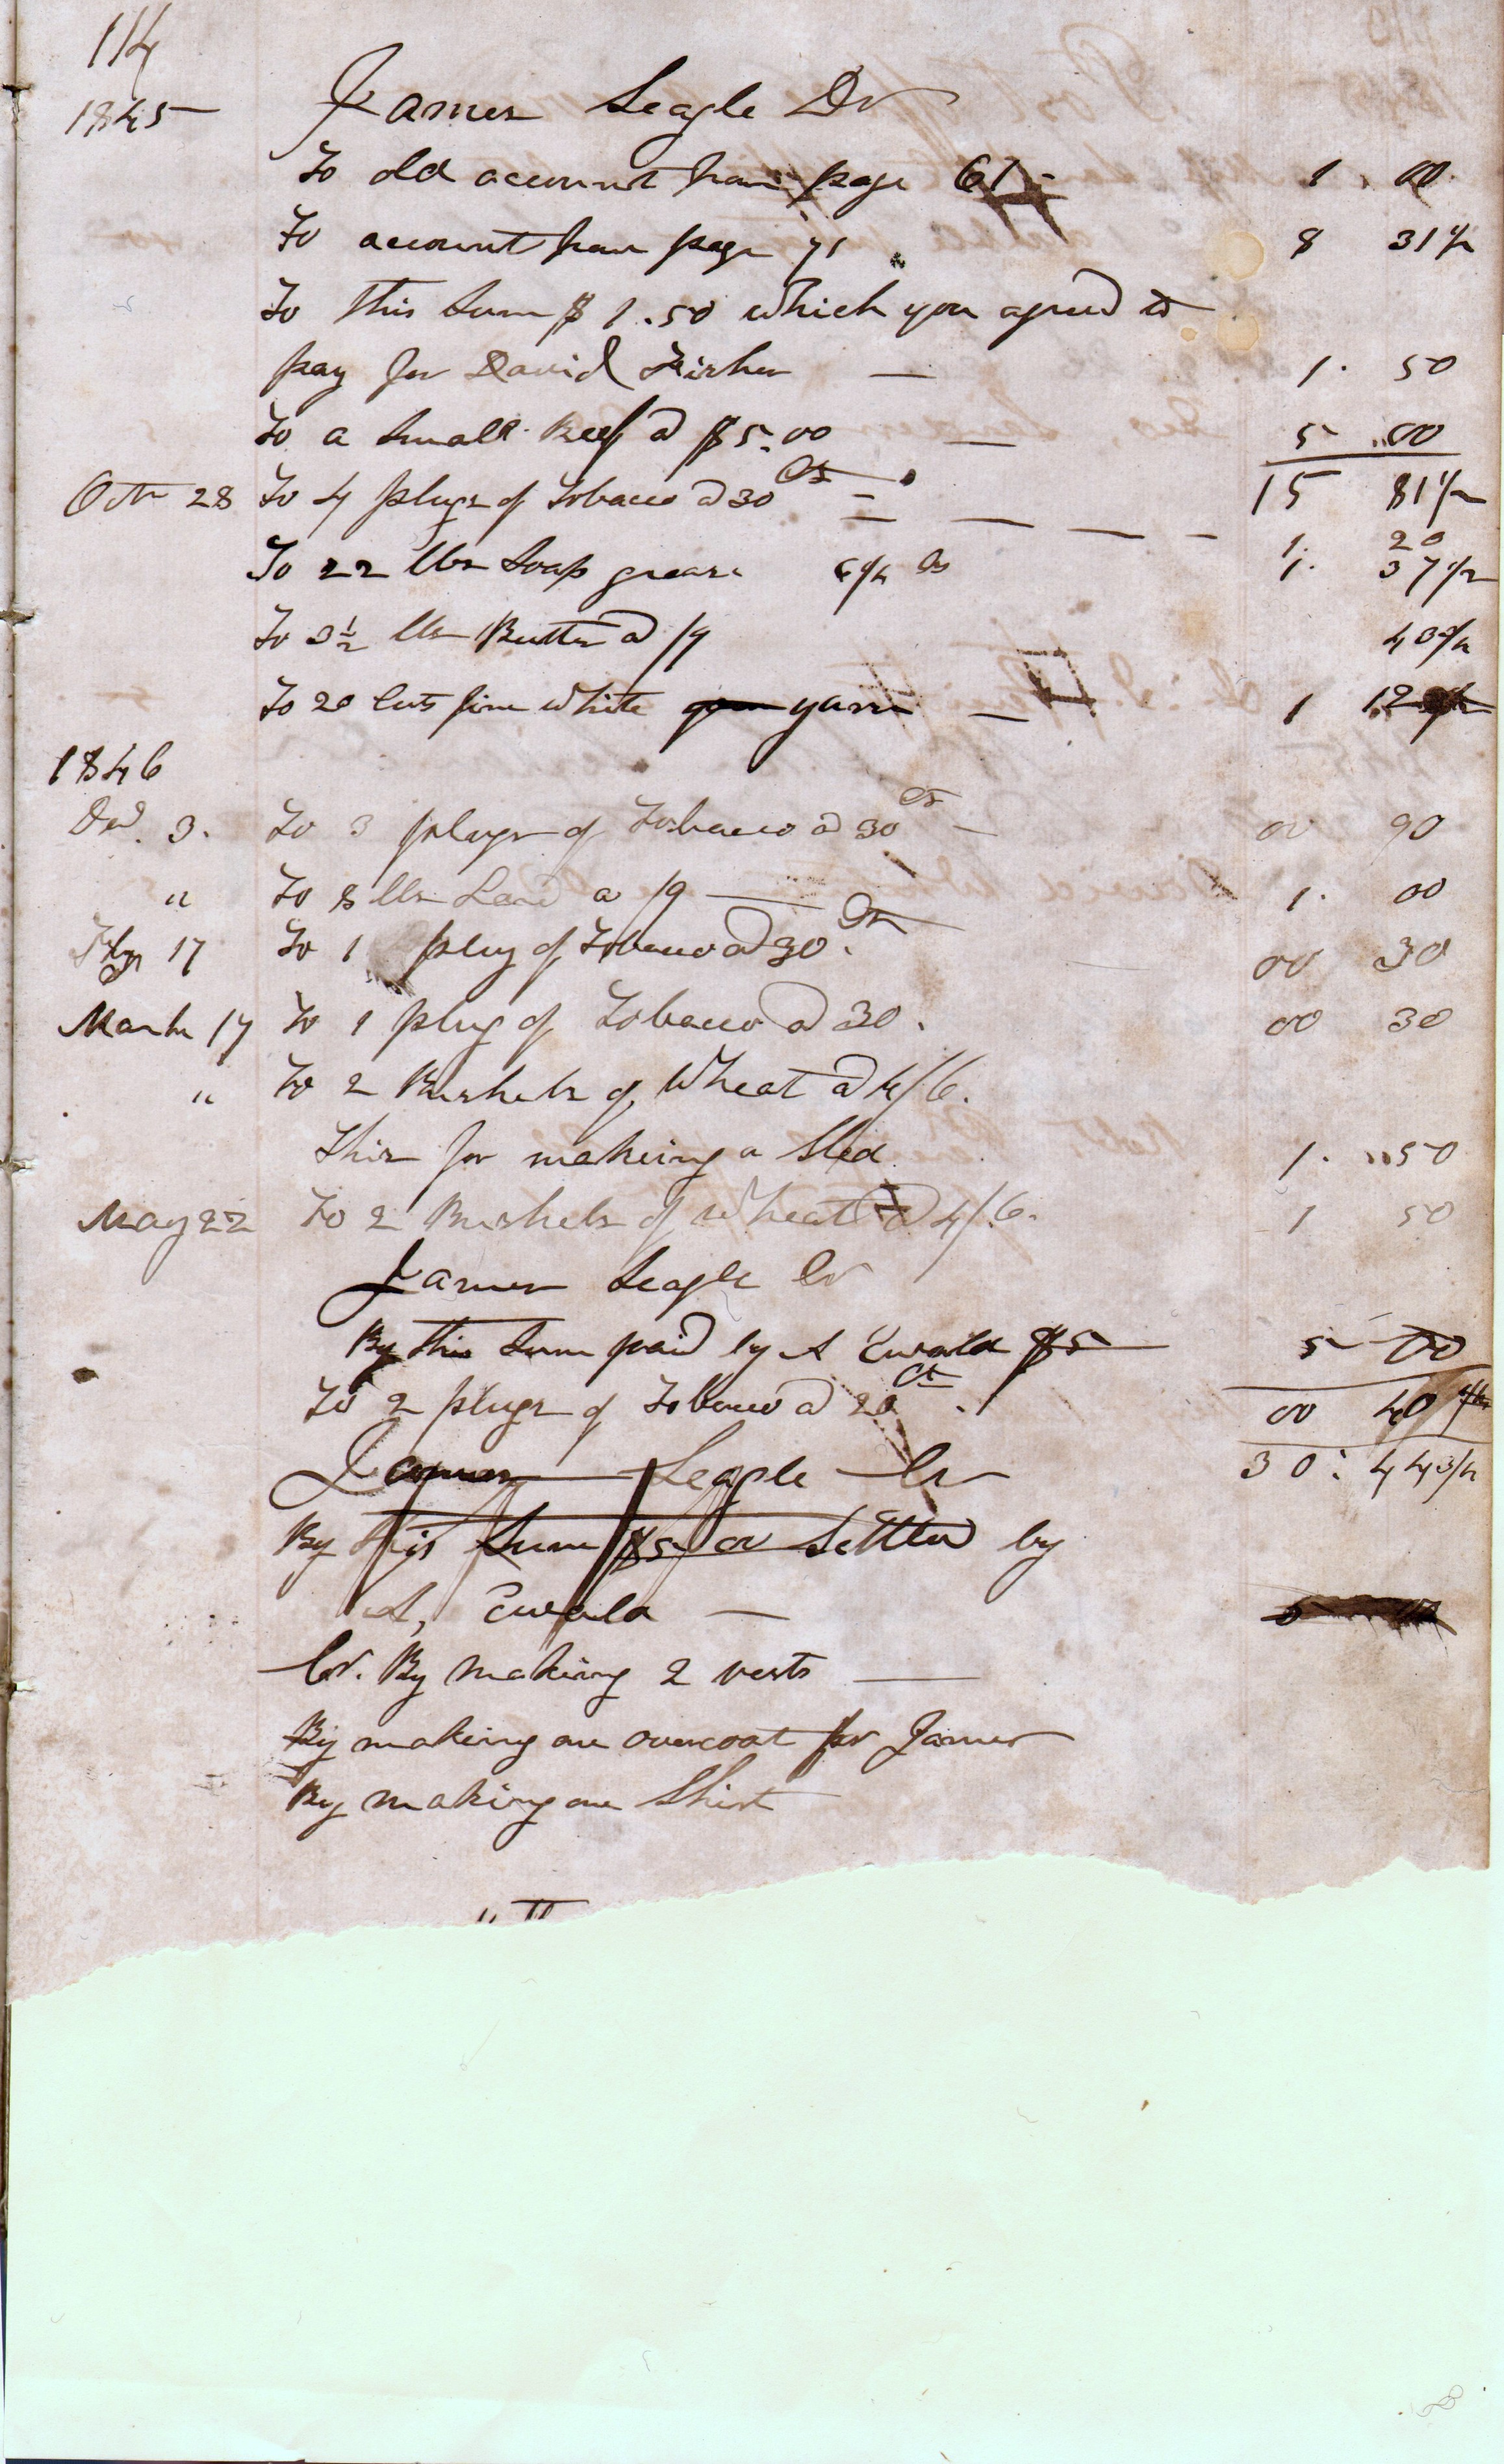 114
1845 James Seagle Dr
To old account from page 61 - 1. 00
To account from page 71 8 31 1/4
To this Sum $ 1.50 which you agreed to
pay for David Fisher — 1. 50
To a Small Beef a $5.00 — 5 .00
15 81 1/4
Octr 28 To 4 plugs of Tobacco a 30 Cts 1. 20
To 22 lbs Soap grease 6 1/4 Cts 1. 37 1/2
To 3 1/2 lbs Butter a /9 43 3/4
To 20 Cuts fine white yarn — 1 12
1846
3. To 3 plugs of Tobacco a 30 Cts — 00 90
" To 8 lbs Lard a /9 — 1. 00
Feby 17 To 1 plug of Tobacco a 30. Cts 00 30
March 17 To 1 plug of Tobacco a 30. 00 30
" To 2 Bushels of Wheat a 4/6.
this for making a Sled 1. 50
May 22 To 2 Bushels of Wheat a 4/6. 1 50
James Seagle Cr
By this Sum paid by A Ewald $5 5 00
To 2 plugs of Tobacco a 20 Ct. 00 40
James Seagle Cr 30: 44 3/4
By this Sum $5 00 Settled by
A, Ewald — 5
Cr. By making 2 vests —
By making one overcoat for James
By making one Shirt